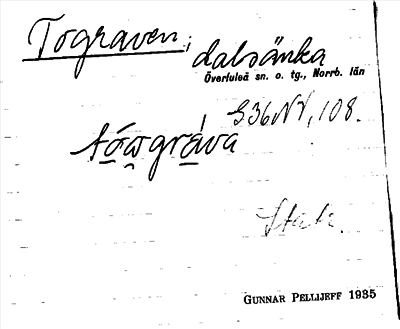 Tograven, dalsänka
Överluleå sn. o. tg., Norrb. län
S36NV, 108.
Stak.
GUNNAR PELLIJEFF 1935